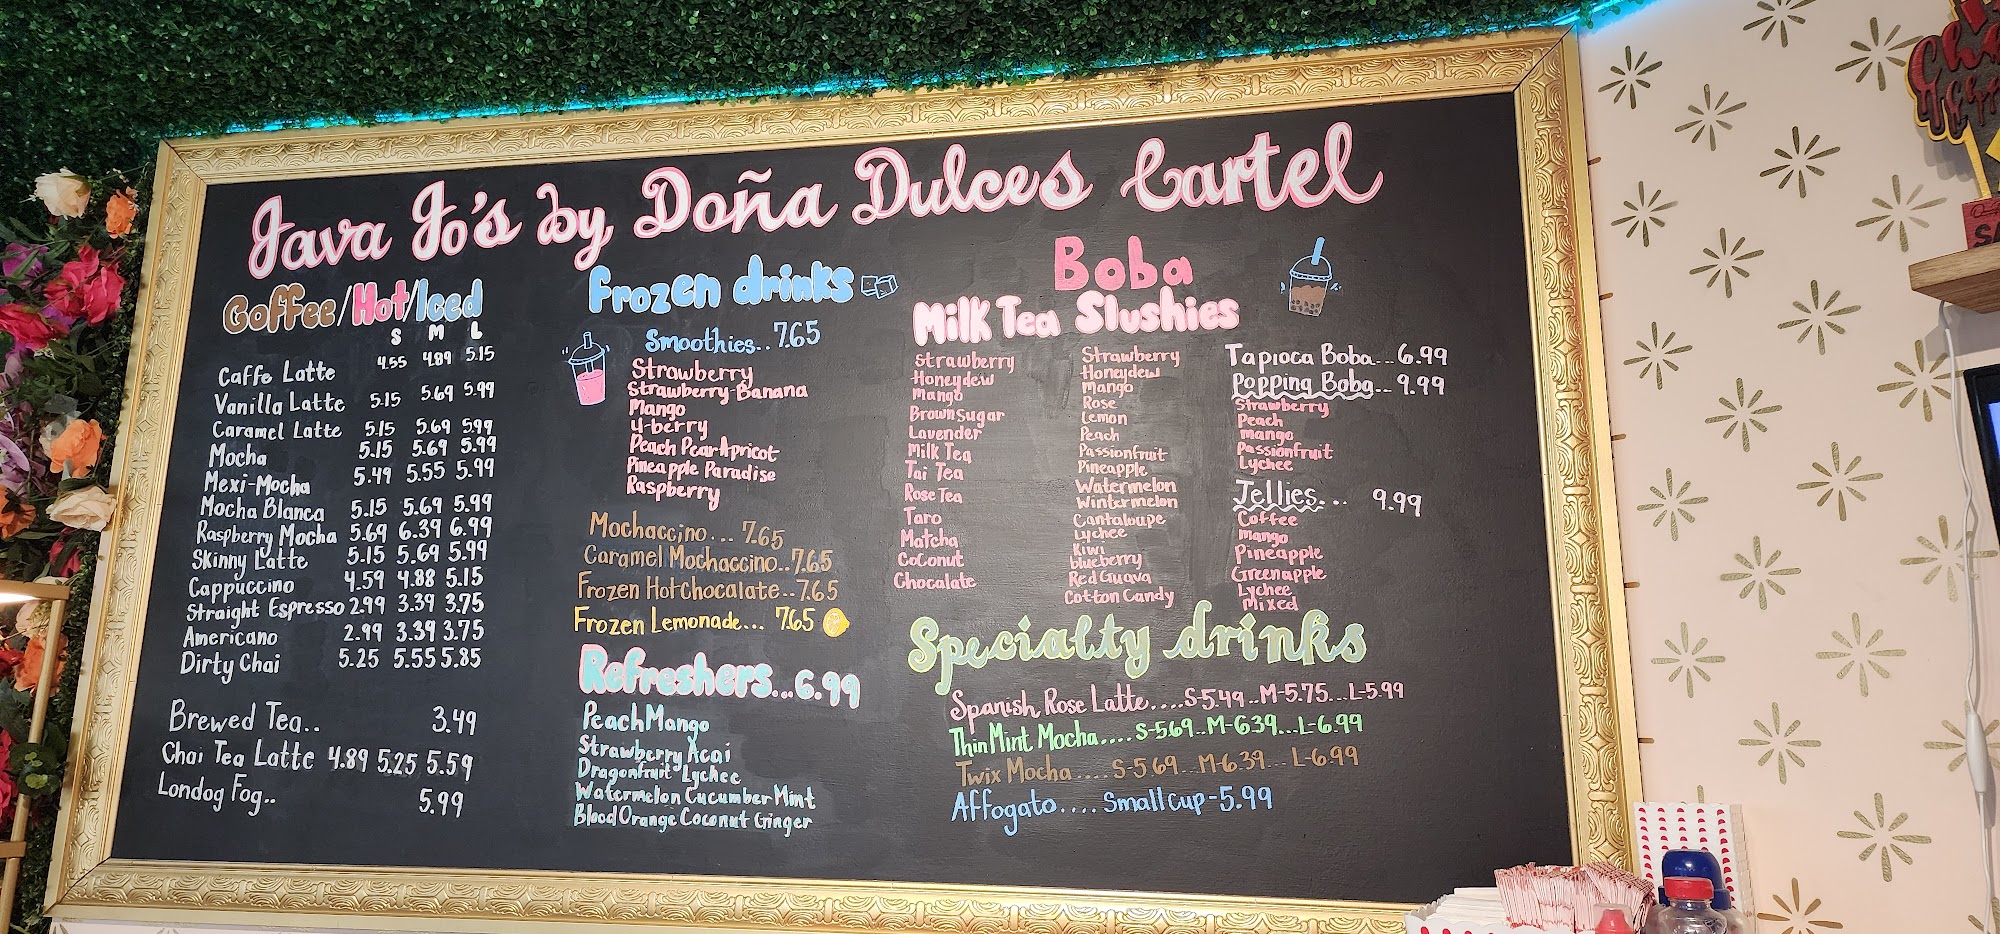 Java Jo's by Doña Dulces Cartel
Coffee/Hot/Iced
S M L
Caffe Latte 4.55 4.89 5.15
Vanilla Latte 5.15 5.69 5.99
Caramel Latte 5.15 5.69 5.99
Mocha 5.15 5.69 5.99
Mexi-Mocha 5.49 5.55 5.99
Mocha Blanca 5.15 5.69 5.99
Raspberry Mocha 5.69 6.39 6.99
Skinny Latte 5.15 5.69 5.99
Cappuccino 4.59 4.88 5.15
Straight Espresso 2.99 3.39 3.75
Americano 2.99 3.39 3.75
Dirty Chai 5.25 5.55 5.85
Brewed Tea.. 3.49
Chai Tea Latte 4.89 5.25 5.59
Londog Fog.. 5.99
Frozen drinks
Smoothies.. 7.65
Strawberry
Strawberry-Banana
Mango
4-berry
Peach Pear Apricot
Pineapple Paradise
Raspberry
Mochaccino... 7.65
Caramel Mochaccino..7.65
Frozen Hot Chocalate..7.65
Frozen Lemonade... 7.65
Refreshers...6.99
Peach Mango
Strawberry Acai
Dragonfruit Lychee
Watermelon Cucumber Mint
Blood Orange Coconut Ginger
Boba
Milk Tea
Strawberry
Honeydew
Mango
Brown Sugar
Lavender
Milk Tea
Tai Tea
Rose Tea
Taro
Matcha
Coconut
Chocalate
Slushies
Strawberry
Honeydew
Mango
Rose
Lemon
Peach
Passionfruit
Pineapple
Watermelon
Wintermelon
Cantaloupe
Lychee
Kiwi
blueberry
Red Guava
Cotton Candy
Tapioca Boba...6.99
Popping Boba...9.99
Strawberry
Peach
mango
Passionfruit
Lychee
Jellies... 9.99
Coffee
mango
Pineapple
Green apple
Lychee
Mixed
Specialty drinks
Spanish Rose Latte....S-5.49..M-5.75...L-5.99
Thin Mint Mocha....S-5.69..M-6.39...L-6.99
Twix Mocha....S-5.69...M-6.39...L-6.99
Affogato....Small cup-5.99